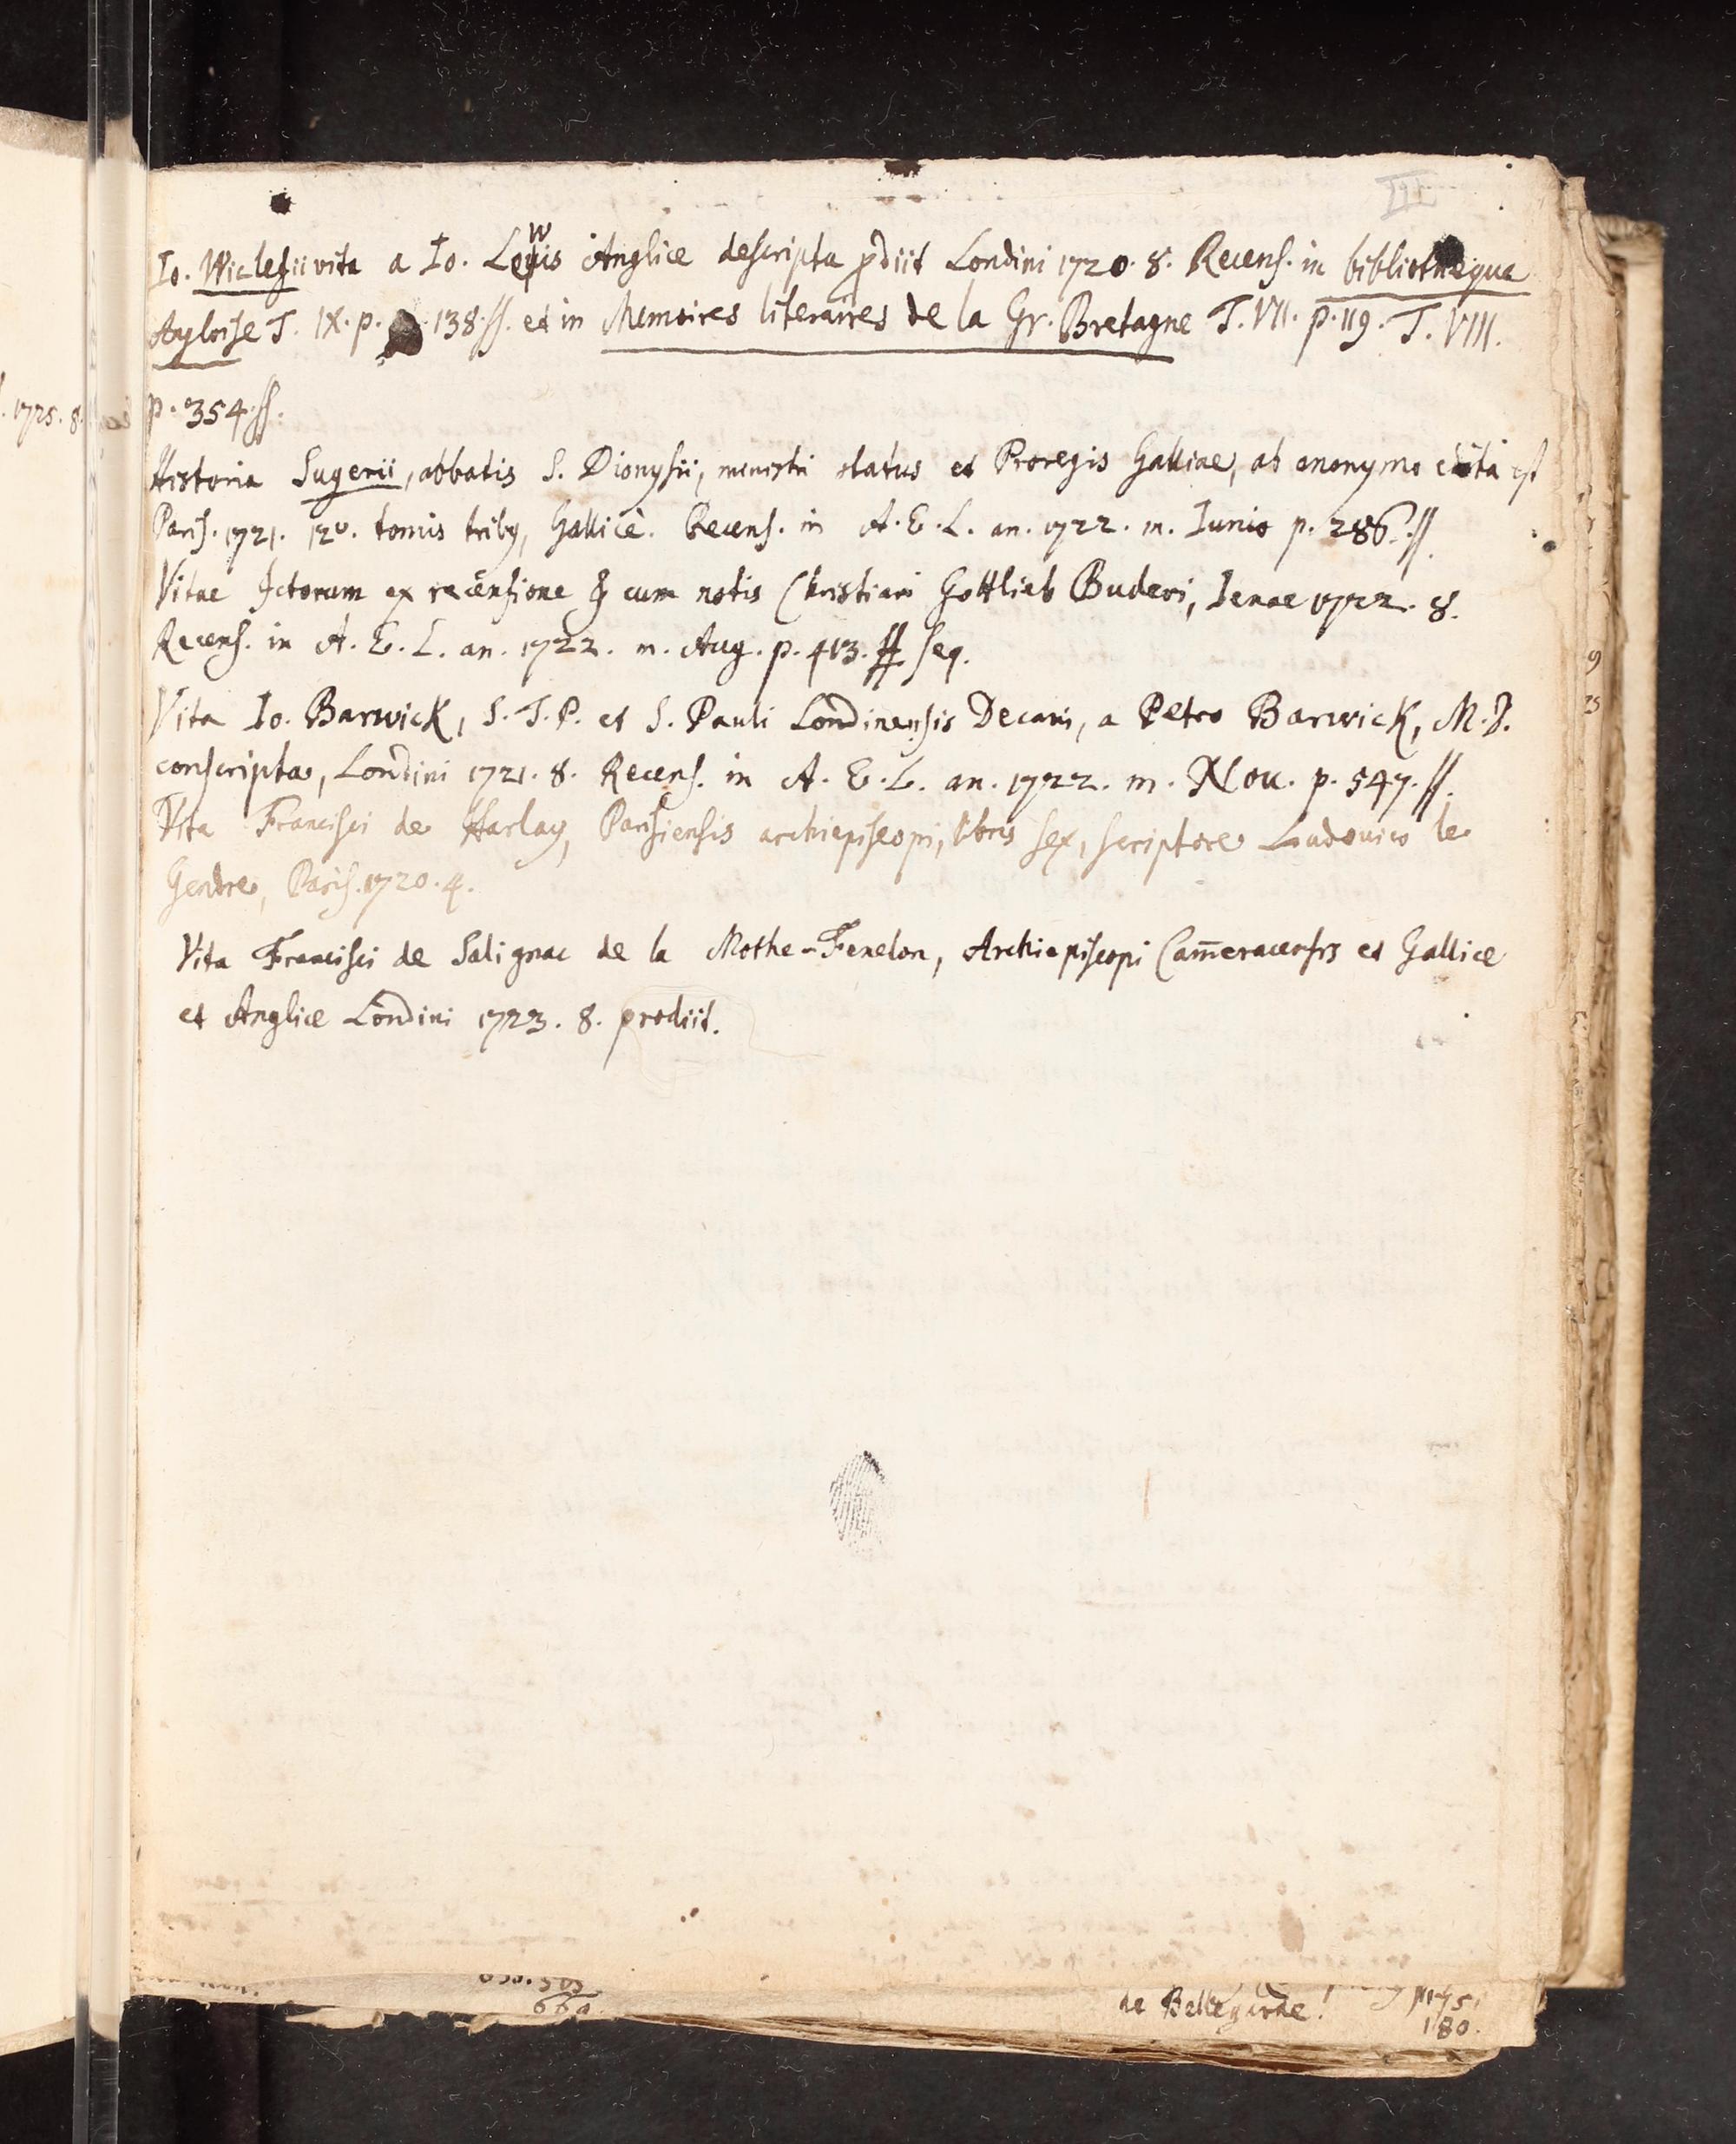 Io. Wiclefii vita a Io. Lewis Anglice descripta prodiit Londini 1720. 8. Recens. in bibliotheque
Angloise T. IX. p. 138. ss. et in Memoires literaires de la Gr. Bretagne T. VII. p. 119. T. VIII.
p. 354. ss.
Historia Sugerii, abbatis S. Dionysii, ministri status et Proregis Galliae, ab anonymo edita est
Paris. 1721. 12°. tomis tribus, Gallicè. Recens. in A. E. L. an. 1722. m. Iunio p. 286. ss.
Vitae Ictorum ex recensione & cum notis Christiani Gottlieb Buderi, Ienae 1722. 8.
Recens. in A. E. L. an. 1722. m. Aug. p. 413. seq.
Vita Io. Barwick, S. T. P. et S. Pauli Londinensis Decani, a Petro Barwick, M. D.
conscripta, Londini 1721. 8. Recens. in A. E. L. an. 1722. m. Nou. p. 547. ss.
Vita Francisci de Harlay, Parisiensis archiepiscopi, libris sex, scriptore Ludouico le
Gendre, Paris. 1720. 4.
Vita Francisci de Salignac de la Mothe-Fenelon, Archiepiscopi Cam̄eracensis et Gallice
et Anglice Londini 1723. 8. prodiit.
1725. 8.
de Bellegarde!
660.
180.